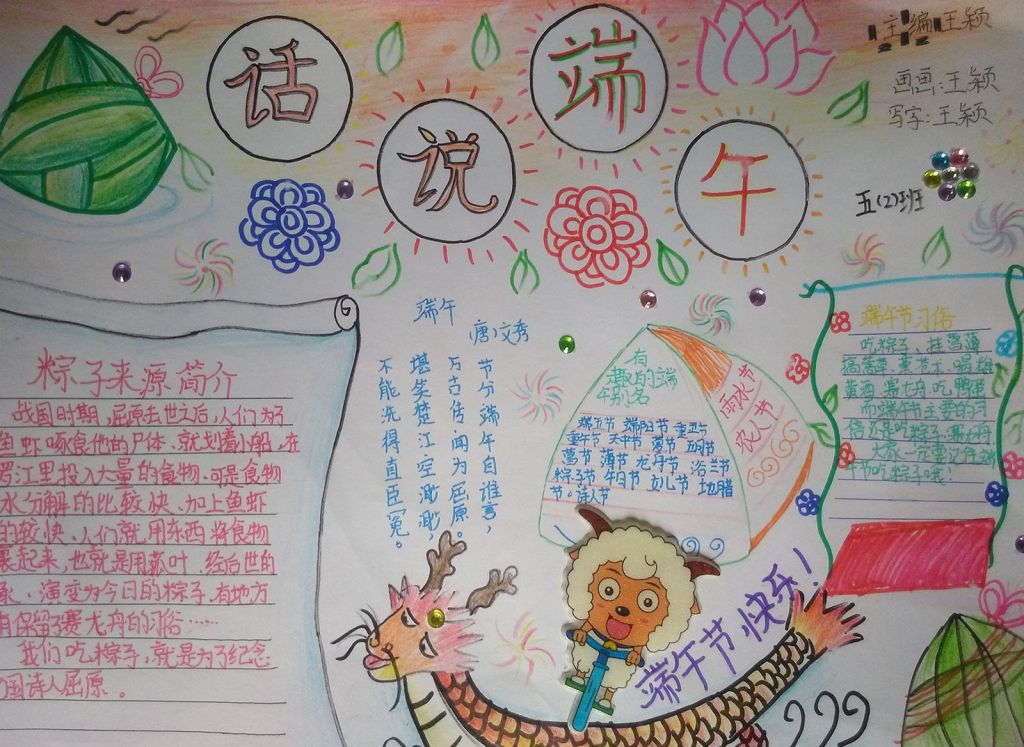 话说端午
主编:王颖
画画:王颖
写字:王颖
五(2)班
粽子来源简介
战国时期,屈原去世之后,人们为了
鱼虾啄食他的尸体,就划着小船,在
罗江里投入大量的食物,可是食物
水分解的比较快、加上鱼虾
的较快、人们就用东西将食物
裹起来,也就是用菰叶、经后世的
演变为今日的粽子、有地方
保留了赛龙舟的习俗……
我们吃粽子,就是为了纪念
国诗人屈原。
端午
唐 文秀
节分端午自谁言,
万古传闻为屈原。
堪笑楚江空渺渺,
不能洗得直臣冤。
有
趣的端
午别名
端五节 端阳节 重五节
重午节 天中节 夏节 五月节
菖节 蒲节 龙舟节 浴兰节
粽子节 午日节 女儿节 地腊
节。诗人节
雨水节
农人节
端午节习俗
吃粽子、挂菖蒲
黄酒、赛龙舟、吃鸭蛋
而端午节主要的习
俗还是吃粽子、赛龙舟
大家一定要记住端
午节吃粽子哦!
端午节快乐!